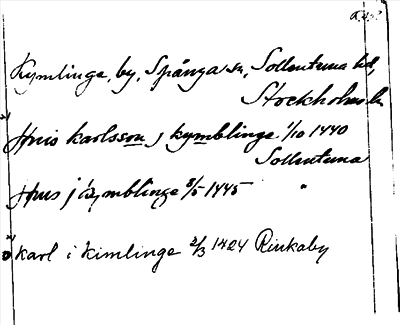 Kymlinge, by, Spånga sn, Sollentuna hd,
Stockholms l.
Hnis karlsson j kymblinge 1/10 1440
Sollentuna
Hnis j kymblinge 8/5 1445 "
karl i kimlinge 2/3 1424 Rinkaby